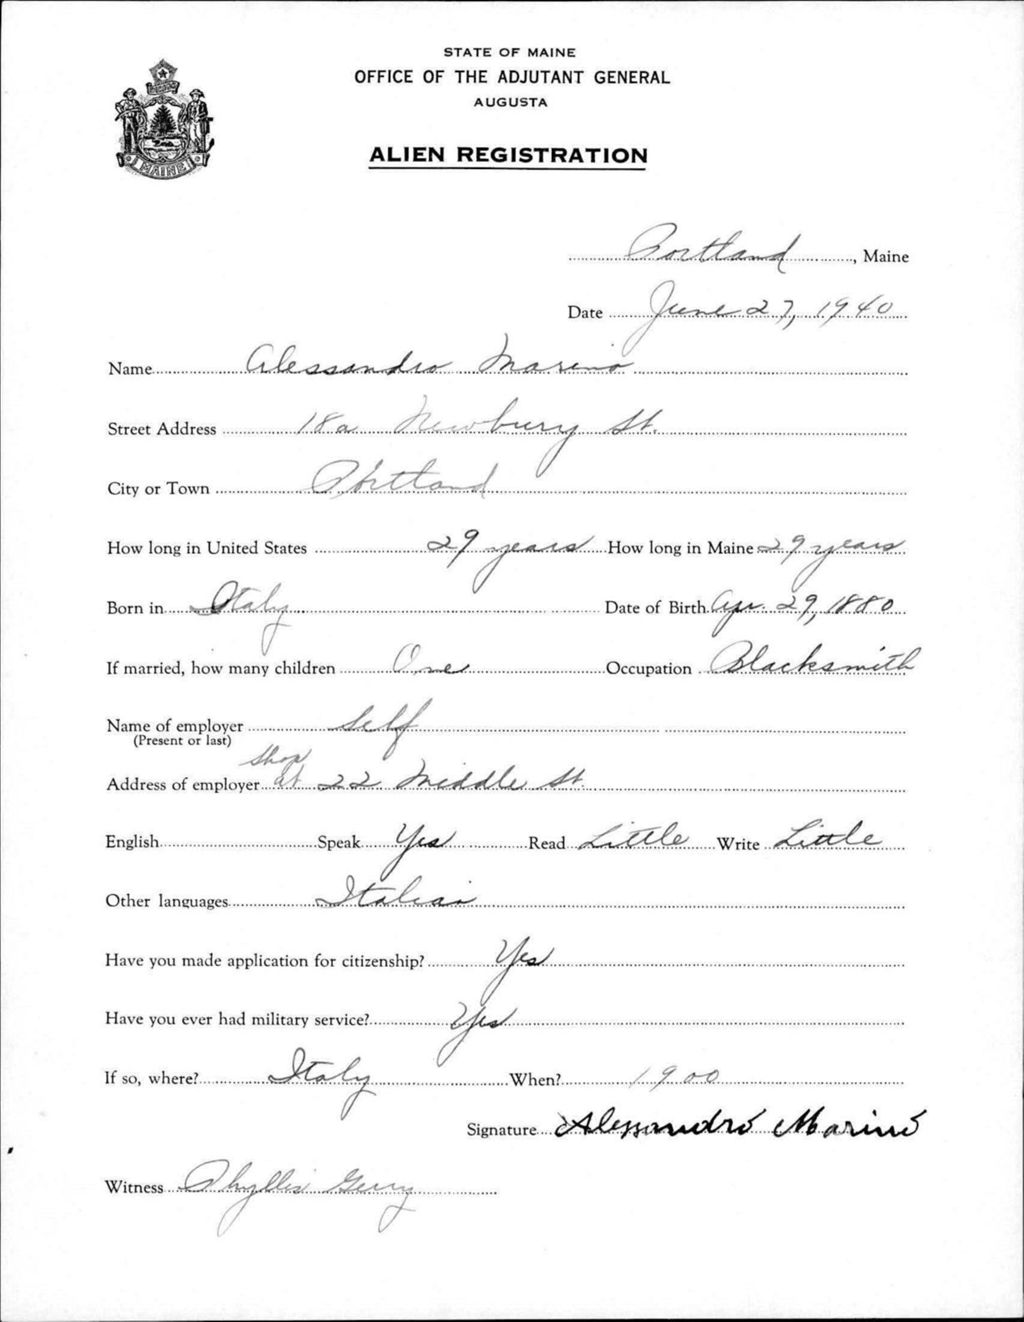 STATE OF MAINE
OFFICE OF THE ADJUTANT GENERAL
AUGUSTA
ALIEN REGISTRATION
MAINE
Portland, Maine
Date June 27, 1940
Name Alessandro Marino
Street Address 18a Newbury St.
City or Town Portland
How long in United States 29 years How long in Maine 29 years
Born in Italy Date of Birth Apr. 29, 1880
If married, how many children One Occupation Blacksmith
Name of employer Self
(Present or last)
Shop
Address of employer at 22 Middle St.
English Speak Yes Read Little Write Little
Other languages Italian
Have you made application for citizenship? Yes
Have you ever had military service? Yes
If so, where? Italy When? 1900
Signature Alessandro Marino
Witness Phyllis Gerry